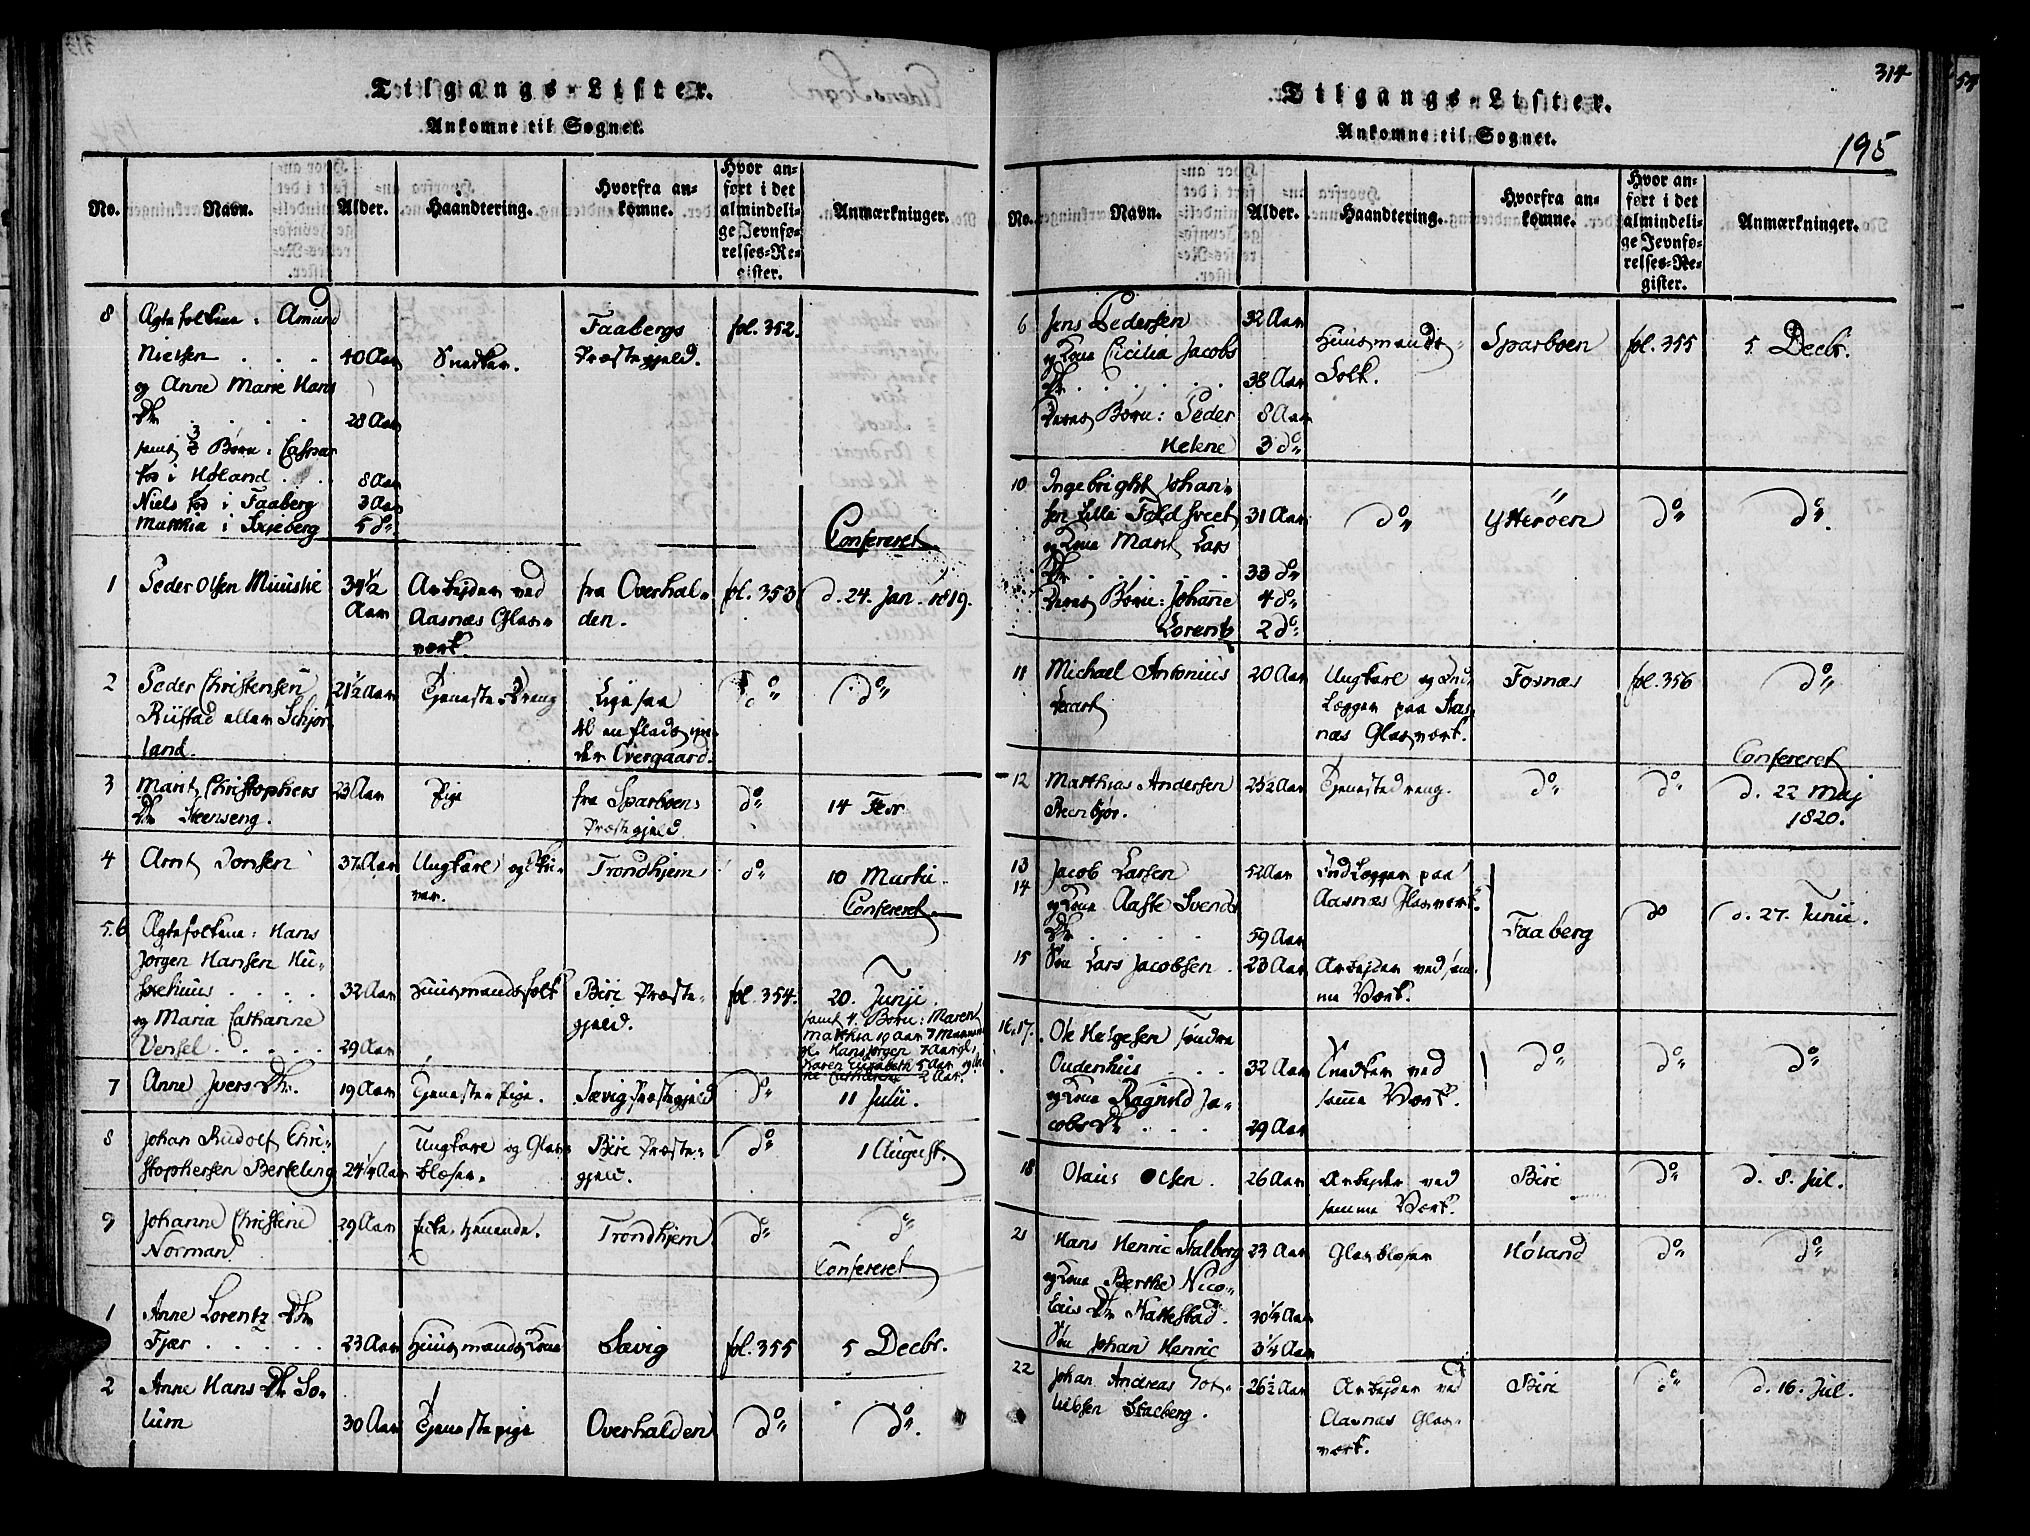 Tilgangs-Lister.
Ankomne til Sognet.
No.
Navn.
Alder.
Haandtering.
Hvorfra ankomne.
Hvor anført i det almindelige Jevnførelses-Register.
Anmærkninger.
8 Amund
Nielsen . . . 40 Aar Snedker. Faabergs Præstegjeld. fol. 352.
og Anne Marie Hans
Dtr . . . . 28 Aar
samt 3 Børn: Caspar
fød i Høland . . 8 Aar
Niels fød i Faaberg 3 Aar
Matthia i 5 do.
Confereret
1 Peder Olsen 34 1/2 Aar Arbejder ved Aasnæs Glasværk. fra Overhalden. fol. 353 d. 24. Jan. 1819.
2 Peder Christensen 21 1/2 Aar Tjenestedreng do do
Rustad eller
land. Overgaard.
3 Marit Christophers 23 Aar Pige fra Sparboens Præstegjeld. do 14 Febr
Dtr Steenseng.
4 Arnt Jonsen 37 Aar Ungkarl og Trondhjem do 10 Martii.
Confereret
5.6 Ægtefolkene: Hans
Jørgen Hansen
. . . . 32 Aar Huusmandsfolk Biri Præstegjeld. fol. 354. 20. Junii.
og Maria Catharine samt 4 Børn: Maren
. . . . . 29 Aar Matthia 10 Aar
Hans Jørgen 7 Aar
Karen Elisabeth 5 Aar
2 Aar.
7 Anne Ivers Dtr. 19 Aar Tjeneste Pige. Sævig Præstegjeld do 11 Julii.
8 Johan Rudolf Christophersen Berteling 24 1/4 Aar Ungkarl og Glasblæser. Biri Præstegjeld. do 1 August.
9 Johanne Christine 29 Aar Trondhjem do do
Norman
Confereret
1 Anne Lorentz Dtr
Fjær . . . . . 23 Aar Huusmands Kone Sævig fol. 355 5 Decbr.
2 Anne Hans Dtr Solum 30 Aar Tjenestepige Overhalden do do.
Tilgangs-Lister.
Ankomne til Sognet.
314
195
No.
Navn.
Alder.
Haandtering.
Hvorfra ankomne.
Hvor anført i det almindelige Jevnførelses-Register.
Anmærkninger.
6 Jens Pedersen 32 Aar Huusmands Folk. Sparboen fol. 355 5 Decbr.
og Kone Cicilia Jacobs
Dtr . . . . . 38 Aar
Deres Børn: Peder 8 Aar
Helene 3 do
10 Ingebright Johansen Lille 31 Aar do Ytterøen do do.
og Kone Marit Lars
Dtr . . . . . 33 do
Deres Børn: Johanne 4 do
Lorents 2 do
11 Michael Antonius 20 Aar Ungkarl og Indlægger paa Aasnæs Glasværk. Fosnæs fol. 356 do
Confereret
12 Matthias Andersen 23 1/2 Aar Tjenestedreng. do do d. 22 Maj
1820.
13 Jacob Larsen 52 Aar Indlægger paa
14 og Kone Aaste Svends Aasnæs Glasværk. Faaberg do d. 27. Junii.
Dtr . . . . 59 Aar
15 Søn Lars Jacobsen . 23 Aar Arbejder ved samme Værk.
16.17. Ole Helgesen søndre
. . 32 Aar Snedker ved samme Værk. do do do
og Kone Ragnild Jacobs Dtr . . . 29 Aar
18 Olaus Olsen . 26 Aar Arbejder ved samme Værk. Biri do d. 8. Jul.
21 Hans Henric Stalberg 23 Aar Glasblæser Høland do do
og Kone Berthe Nicolais Dtr Kattestad. 30 1/4 Aar
Søn Johan Henric 3 1/4 Aar
22 Johan Andreas Gotlibsen Stalberg. 26 1/2 Aar Arbejder ved Aasnæs Glasværk. Biri do d. 16. Jul.